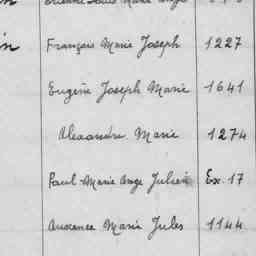 Marie Ange
François Marie Joseph 1227
Eugène Joseph Marie 1641
Alexandre Marie 1274
Paul Marie Ange Julien Ex. 17
Auxence Marie Jules 1144